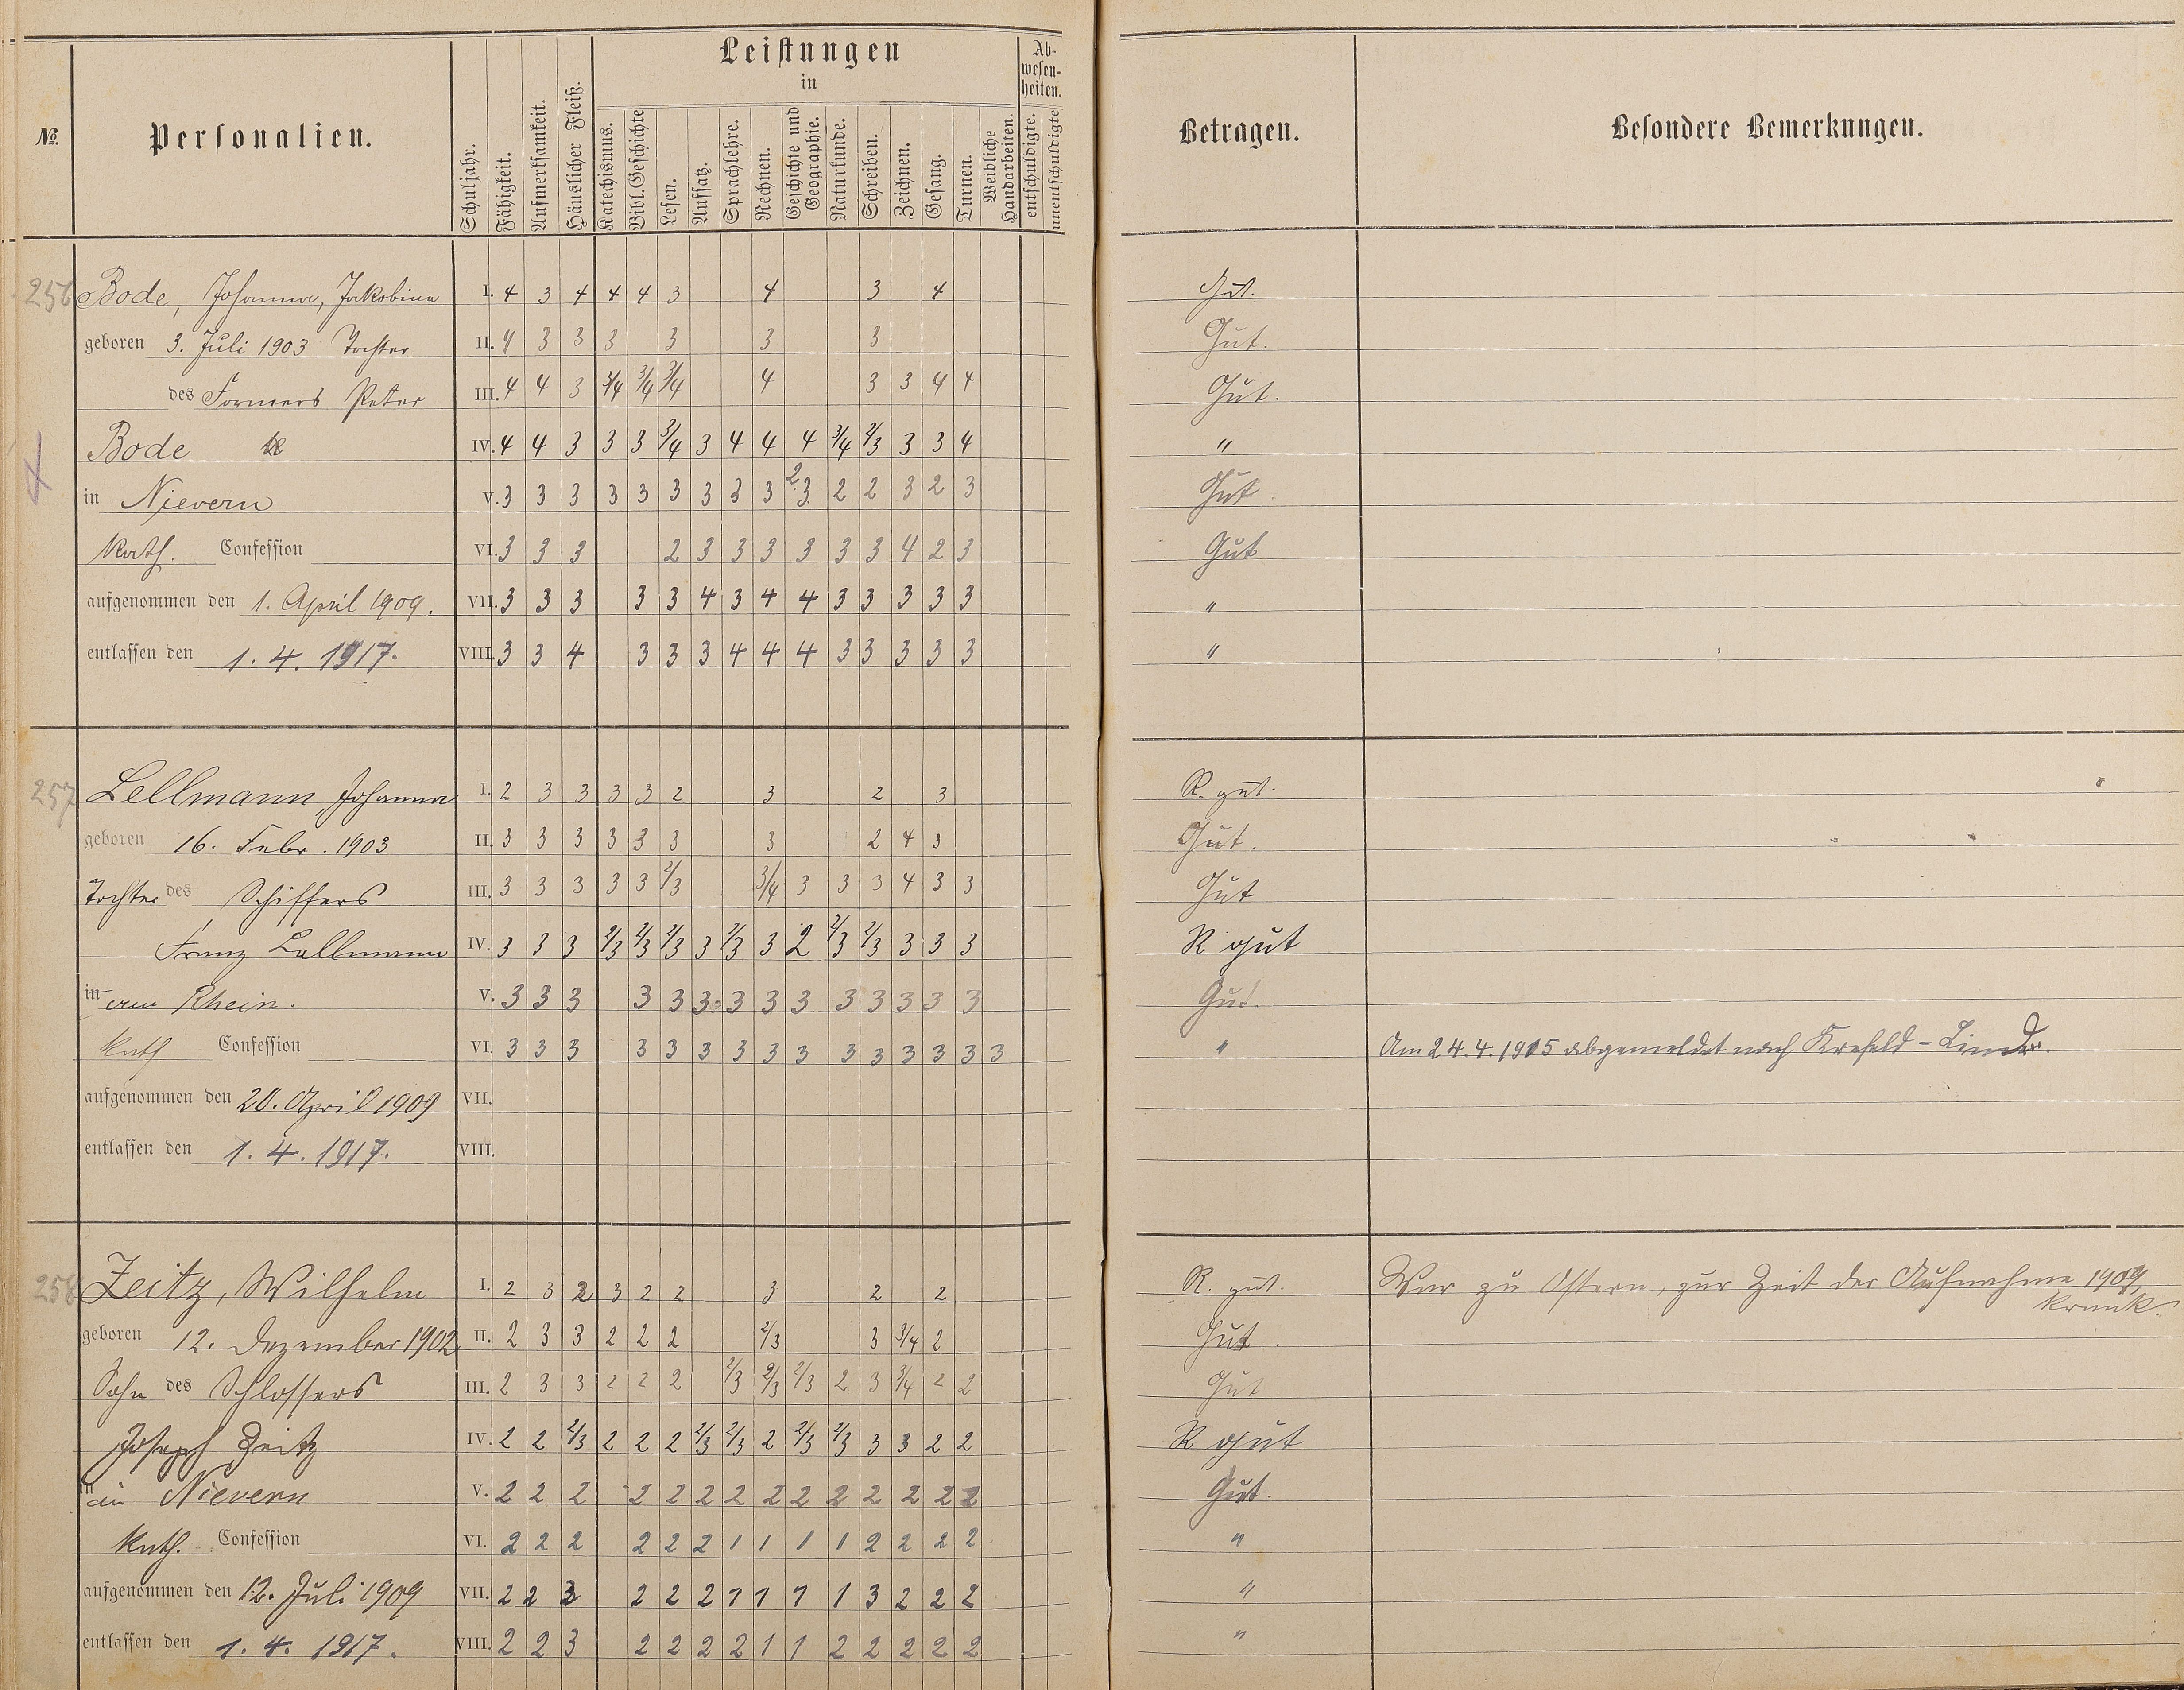 Leistungen
in
Ab-
wesen-
heiten.
№
Personalien.
Schuljahr.
Fähigkeit.
Aufmerksamkeit.
Häuslicher Fleiß.
Katechismus.
Bibl. Geschichte
Lesen.
Aufsatz.
Sprachlehre.
Rechnen.
Geschichte und
Geographie.
Naturkunde.
Schreiben.
Zeichnen.
Gesang.
Turnen.
Weibliche
Handarbeiten.
entschuldigte.
unentschuldigte
Betragen.
Besondere Bemerkungen.
256 Bode, Johanna, Jakobina I. 4 3 4 4 4 3 4 3 4 Gut.
geboren 3. Juli 1903 Tochter II. 4 3 3 3 3 3 3 Gut.
des Formers Peter III. 4 4 3 3/4 3/4 3/4 4 3 3 4 4 Gut.
Bode IV. 4 4 3 3 3 3/4 3 4 4 4 3/4 2/3 3 3 4 "
in Nievern V. 3 3 3 3 3 3 3 3 3 2 3 2 2 3 2 3 Gut.
Kath. Confession VI. 3 3 3 2 3 3 3 3 3 3 4 2 3 Gut
aufgenommen den 1. April 1909. VII. 3 3 3 3 3 4 3 4 4 3 3 3 3 3 "
entlassen den 1. 4. 1917. VIII. 3 3 4 3 3 3 4 4 4 3 3 3 3 3 "
257 Lellmann Johanna I. 2 3 3 3 3 2 3 2 3 R. gut.
geboren 16. Febr. 1903 II. 3 3 3 3 3 3 3 2 4 3 Gut.
Tochter des Schiffers III. 3 3 3 3 3 2/3 3/4 3 3 3 4 3 3 Gut
Franz Lellmann IV. 3 3 3 2/3 2/3 2/3 3 2/3 3 2 2/3 2/3 3 3 3 R gut
in am Rhein. V. 3 3 3 3 3 3 3 3 3 3 3 3 3 3 Gut.
Kath Confession VI. 3 3 3 3 3 3 3 3 3 3 3 3 3 3 3 " Am 24.4.1915 abgemeldet nach Krefeld-Linn.
aufgenommen den 20. April 1909 VII.
entlassen den 1. 4. 1917. VIII.
258 Zeitz, Wilhelm I. 2 3 2 3 2 2 3 2 2 R. gut. War zu Ostern, zur Zeit der Aufnahme 1909,
krank.
geboren 12. Dezember 1902 II. 2 3 3 2 2 2 2/3 3 3/4 2 Gut.
Sohn des Schlossers III. 2 3 3 2 2 2 2/3 2/3 2/3 2 3 3/4 2 2 Gut
Joseph Zeitz IV. 2 2 2/3 2 2 2 2/3 2/3 2 2/3 2/3 3 3 2 2 R gut
in Nievern V. 2 2 2 2 2 2 2 2 2 2 2 2 2 2 Gut.
Kath. Confession VI. 2 2 2 2 2 2 1 1 1 1 2 2 2 2 "
aufgenommen den 12. Juli 1909 VII. 2 2 3 2 2 2 1 1 1 1 3 2 2 2 "
entlassen den 1. 4. 1917. VIII. 2 2 3 2 2 2 2 1 1 2 2 2 2 2 "